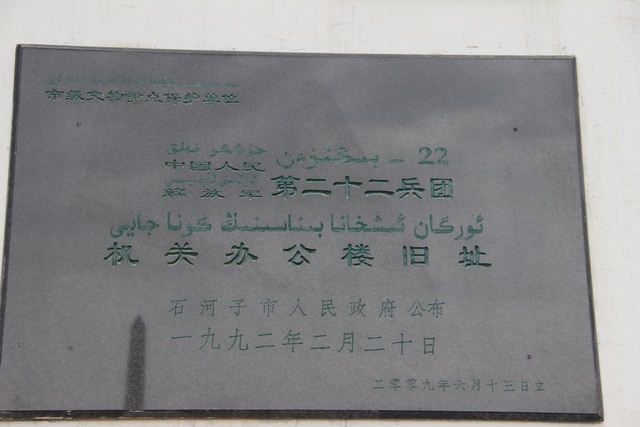 市级文物重点保护单位
22 - بىڭتۇەن
中国人民
解放军 第二十二兵团
ئورگان ئىشخانا بىناسىنىڭ كونا جايى
机关办公楼旧址
石河子市人民政府公布
一九九二年二月二十日
二零零九年六月十三日立